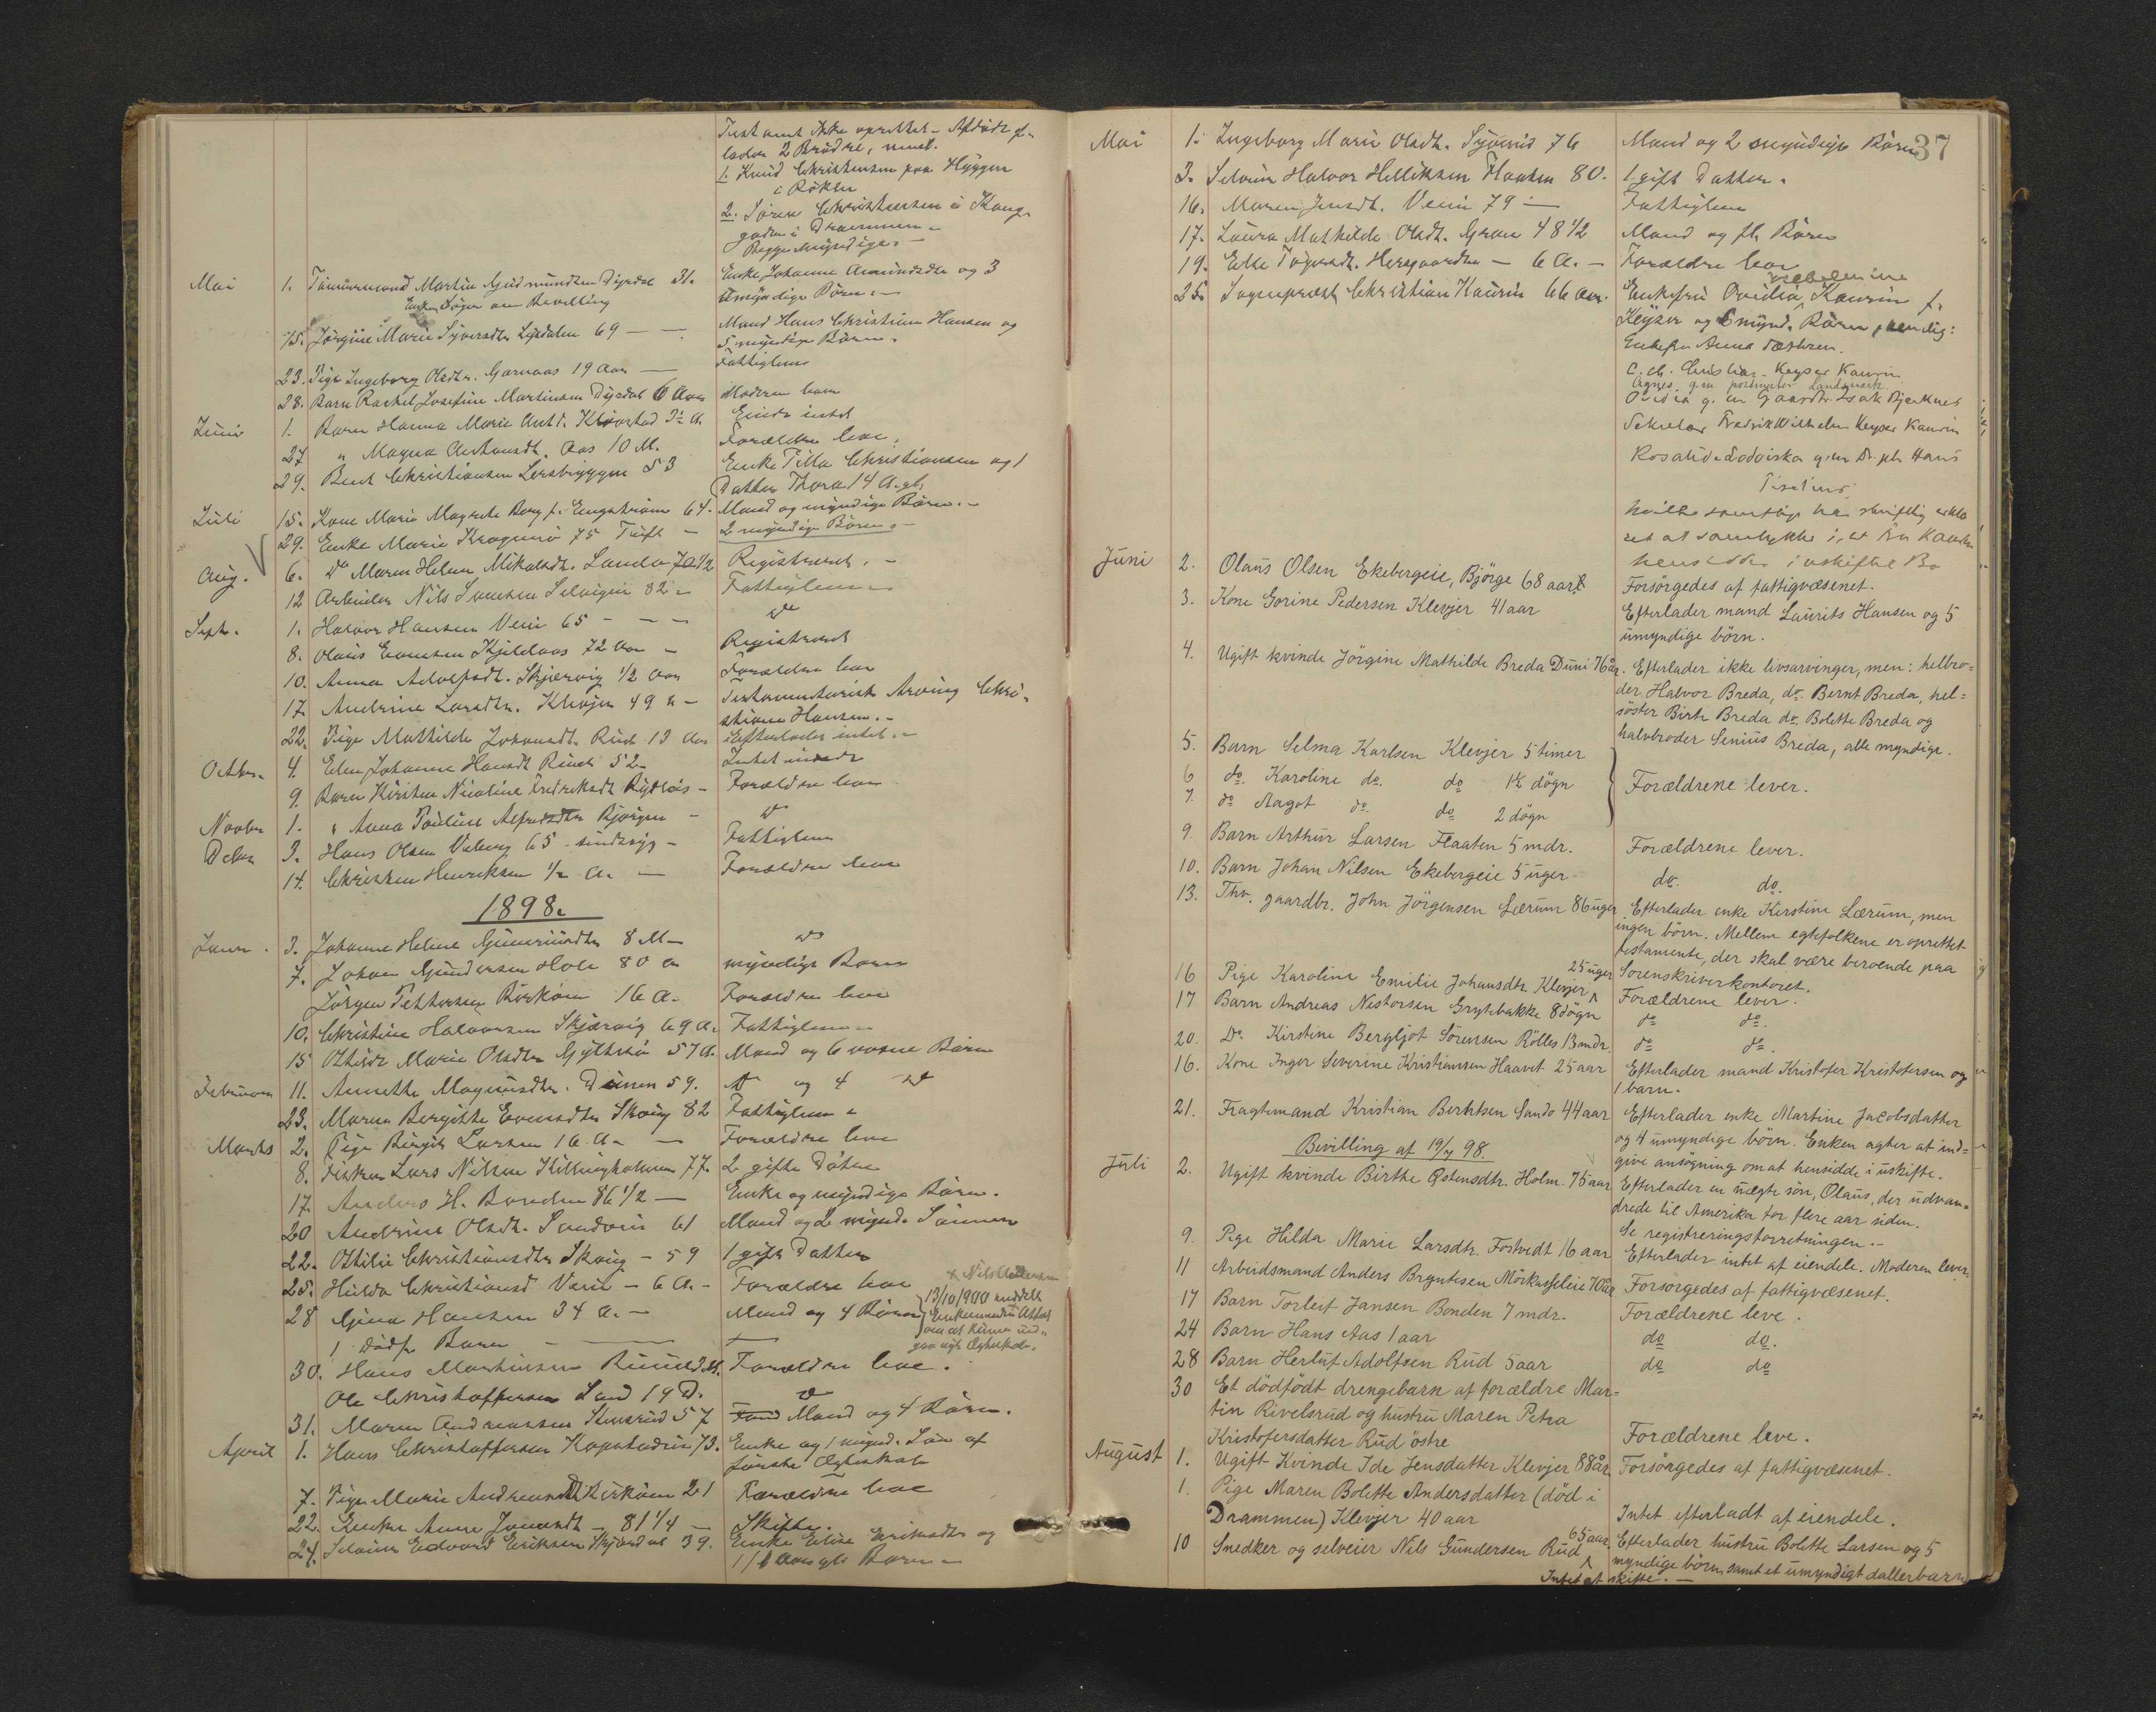 Testament ikke oprettet - Afdöde f-
lader 2 Brödre, neml.
1. Knud Christensen paa Hyggen
i Röken
2. Sören Christensen i Kong-
gaden i Drammen -
Begge myndige. -
Mai 1. Tömmermand Martin Gudmundsen Dyrdal 31. Enke Johanne Amundsdtr og 3
Enken söger om Bevilling umyndige Börn. -
15. Jörgine Marie Syversdtr Lysdalen 69 — — Mand Hans Christian Hansen og
5 myndige Börn.
23. Pige Ingeborg Olsdtr. Garnaas 19 Aar — Fattiglem
28. Barn Rachel Josefine Martinsen Dyrdal 6 Aar Moderen leve
Juni 1. Barn Hanna Marie Antd. Klövstad A. Eiede intet
27 " Magna Aas 10 M. Forældre leve.
29. Bernt Christiansen Lersbryggen 53 Enke Tilla Christiansen og 1
Datter Thora 14 A. gl.
Juli 15. Kone Marie Magrete Berg f. Engström 64. Mand og myndige Börn. -
29. Enke Marie Kragerö 75 Tuft - 2 myndige Börn. -
Aug. 6. Do Maren Helene Mikalsdt. Sando 70 1/2 Registreret. -
12 Arbeider Nils Svendsen Selvigeie 82 - Fattiglem -
Sept. 1. Halvor Hansen Veie 65 - — - do
8. Olaus Evensen Kjeldaas 72 Aar - Registreret
10. Anna Adolfsdt. Skjærvig 1/2 Aar Forældre leve
17. Andrine Larsdtr. Klevjer 49 a - Testamentarisk Arving Chri-
stiane Hansen. -
22. Pige Mathilde Johansdt. Rud 13 Aar Efterlader intet. -
Octbr. 4. Elen Johanne Hansdt Rud 52 - Intet
9. Barn Kirsten Nicoline Fredriksdt - Forældre leve
Novbr 1. " Anna Pauline Alfredsdtr Bjørgen - do
Dcbr 3. Hans Olsen Viberg 65 - sindssyg - Fattiglem
14. Christian Henriksen 1/2 A. — Forældre leve
1898.
Janr. 3. Johanne Heline Guneriusdtr 8 M - do
7. Johan Gundersen Hole 80 a myndige Börn
Jörgen Pettersen Birkom 16 A. Forældre leve
10. Christine Halvorsen Skjærvig 69 a. Fattiglem -
15 Othilde Marie Olsdtr 57 A. Mand og 6 voxne Börn
Februar 11. Annette Magnusdtr. Dunen 59. do og 4 do
23. Maren Bergitte Evensdtr Skoug 82 Fattiglem -
Marts 2. Pige Birgit Larsen 16 a - — Forældre leve
8. Fisker Lars Nilsen Killingholmen 77. 2 gifte Dötre
17. Anders H. Bonden 86 1/2 — Enke og myndige Börn.
20 Andrine Olsdt. Sandveie 61 Mand og 2 mynd. Sönner
22. Othilie Christiansdtr Skoug - 59 1 gift Datter
25. Hilda Christiansd Veie - 6 A. - Forældre leve
28 Gina Hansen 34 a. — Mand og 4 Börn
x Nils
13/10/1900 meddelt
Enkemanden Attest
om at kunne ind-
gaa nyt Ægteskab.
1 dödf. Barn — —
30. Hans Martinsen Ruud M. Forældre leve.
Ole Christoffersen Sand 19 D. do
31. Maren Andreassen Stensrud 57 Mand og 4 Börn.
April 1. Hans Christoffersen 73. Enke og 1 mynd. Sön af
förste Ægteskab
7. Pige Marie Andreasdt Birkom 21 Forældre leve
22. Enke Anne Jonasdt - 81 1/4 — Skifte.
24. Selveier Edvard Eriksen 39. Enke Elise Eriksdtr og
1 Aars gl. Barn -
37
Mai 1. Ingeborg Marie Olsdt. 76 Mand og 2 myndige Börn
3. Selveier Halvor Helliksen Flaaten 80. 1 gift Datter.
16. Maren Jensdt. Veie 79 — Fattiglem
17. Laura Mathilde Olsdt. Gran 48 1/2 Mand og fl. Börn
19. Elke — 6 A. — Forældre leve
25. Sogneprest Christian Kaurin 66 Aar. Enkefru Ovidia Vilhelmine Kaurin f.
Keyser og 6 mynd. Börn, nemlig:
Enkefru Anna
C. ch. Christian Keyser Kaurin
Agnes g.m. postmester Landmark
Ovidia g. m Gaardbr. Isak Bjerknes
Sekretær Fredrik Wilhelm Keyser Kaurin
Rosalide Lodoiska g.m Dr. ph. Hans
hvilke samtlige har skriftlig erklæ
ret at samtykke i, at Fru Kaurin
hensidder i uskiftet Bo
Juni 2. Olaus Olsen Ekebergeie, Bjørge 68 aar. Forsörgedes af fattigvæsenet.
3. Kone Gorine Pedersen Klevjer 41 aar Efterlader mand Laurits Hansen og 5
umyndige börn.
4. Ugift kvinde Jörgine Mathilde Breda Duni 76 år. Efterlader ikke livsarvinger, men: helbro-
der Halvor Breda, do. Bernt Breda, hel-
söster Birte Breda do. Bolette Breda og
halvbroder Senius Breda, alle myndige.
5. Barn Selma Karlsen Klevjer 5 timer
6 do. Karoline do. do 1 1/2 dögn Forældrene lever.
7. do Aagot do. do 2 dögn
9. Barn Arthur Larsen Flaaten 5 mdr. Forældrene lever.
10. Barn Johan Nilsen Ekebergeie 5 uger. do. do.
13. Thv. gaardbr. John Jörgensen Lærum 86 uger Efterlader enke Kirstine Lærum, men
ingen börn. Mellem egtefolkene er oprettet
testamente, der skal være beroende paa
Sorenskriverkontoret.
16 Pige Karoline Emilie Johansdtr. Klevjer 25 uger Forældrene lever.
17 Barn Andreas Nestorsen Grytebakke 8 dögn do do.
20. Do. Kirstine Bergljot Sörensen Rölles 13 mdr. do do.
16. Kone Inger Severine Kristiansen Haavet 25 aar Efterlader mand Kristofer Kristofersen og
1 barn.
21. Fragtemand Kristian Berntsen Sando 44 aar Efterlader enke Martine Jacobsdatter
og 4 umyndige börn. Enken agter at ind-
give ansögning om at hensidde i uskifte.
Bevilling af 19/7 98.
Juli 2. Ugift kvinde Birthe Østensdtr. Holm 75 aar Efterlader en uægte sön, Olaus, der udvan-
drede til Amerika for flere aar siden.
Se registreringsforretningen. -
9. Pige Hilda Marie Larsdtr. Fostvedt 16 aar Efterlader intet af eiendele. Moderen lever.
11 Arbeidsmand Anders Bryntesen Mörkassjeleie 70 år Forsörgedes af fattigvæsenet.
17 Barn Torleif Jansen Bonden 7 mdr. Forældrene leve.
24 Barn Hans Aas 1 aar do do.
28 Barn Herlüf Adolfsen Rud 5 aar do do
30 Et dödfödt drengebarn af forældre Mar-
tin Rivelsrud og hustru Maren Petra
Kristofersdatter Rud östre Forældrene leve.
August 1. Ugift Kvinde Ide Jensdatter Klevjer 88 år Forsörgedes af fattigvæsenet.
1. Pige Maren Bolette Andersdatter (död i
Drammen) Klevjer 40 aar Intet efterladt af eiendele.
10 Snedker og selveier Nils Gundersen Rud 65 aar. Efterlader hustru Bolette Larsen og 5
myndige börn samt et umyndigt datterbarn
Intet at skifte. —